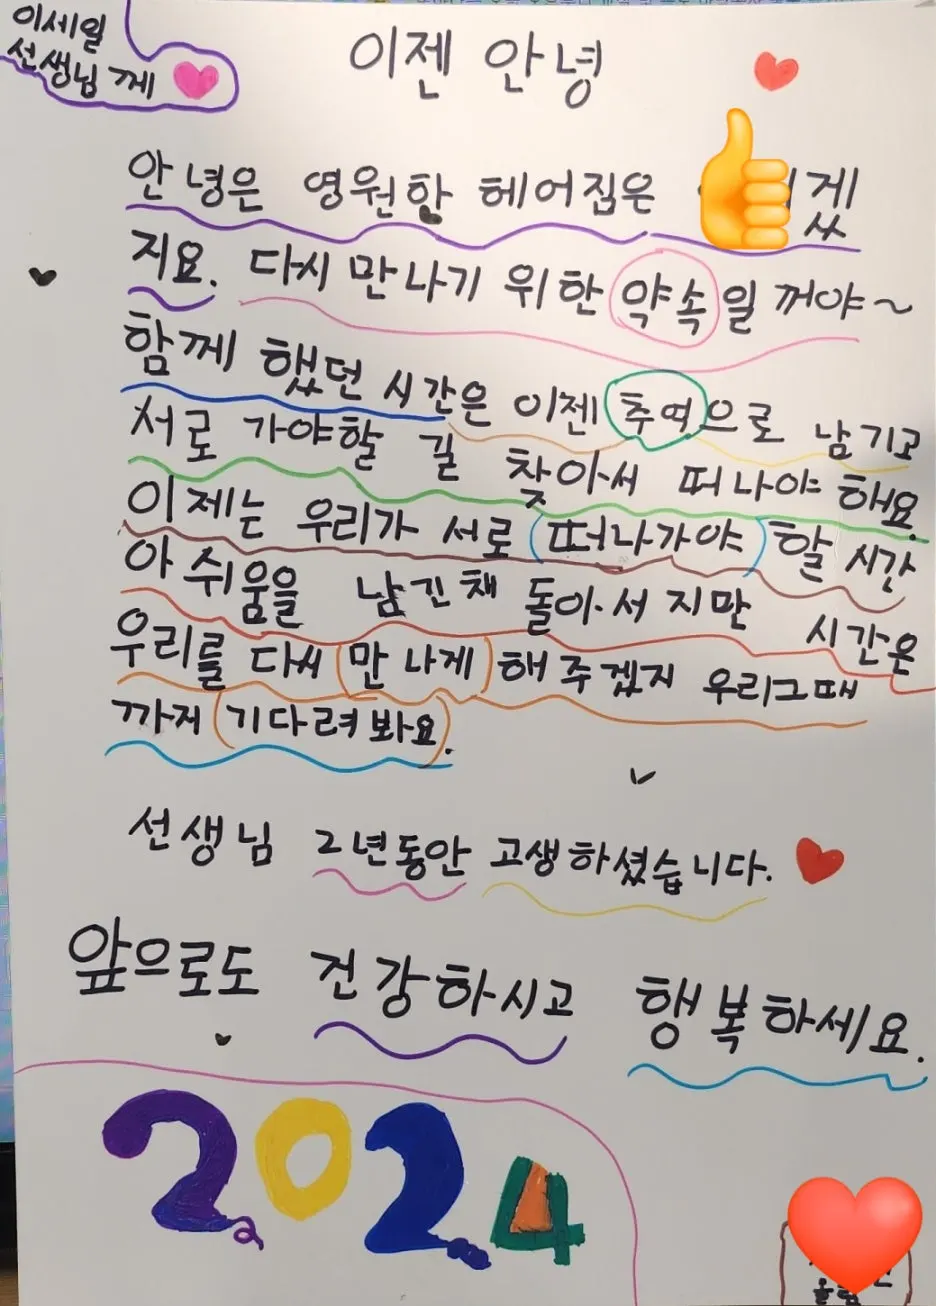 이세일
선생님께
이젠 안녕
안녕은 영원한 헤어짐은 겠
지요. 다시 만나기 위한 약속일 꺼야~
함께 했던 시간은 이젠 추억으로 남기고
서로 가야할 길 찾아서 떠나야 해요.
이제는 우리가 서로 떠나가야 할 시간
아쉬움을 남긴채 돌아서지만 시간은
우리를 다시 만나게 해주겠지 우리그때
까지 기다려봐요.
선생님 2년동안 고생하셨습니다.
앞으로도 건강하시고 행복하세요.
2024